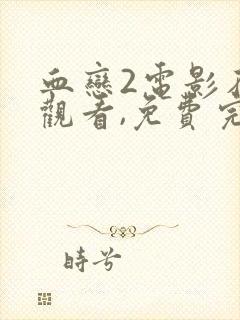 血戀2電影
觀看,免費完
時兮